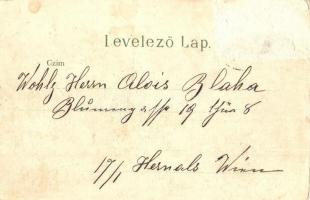 Levelező Lap.
Czim
Wohlg Herrn Alois Blaha
Blumengasse 19 thür 8
17/1 Hernals Wien